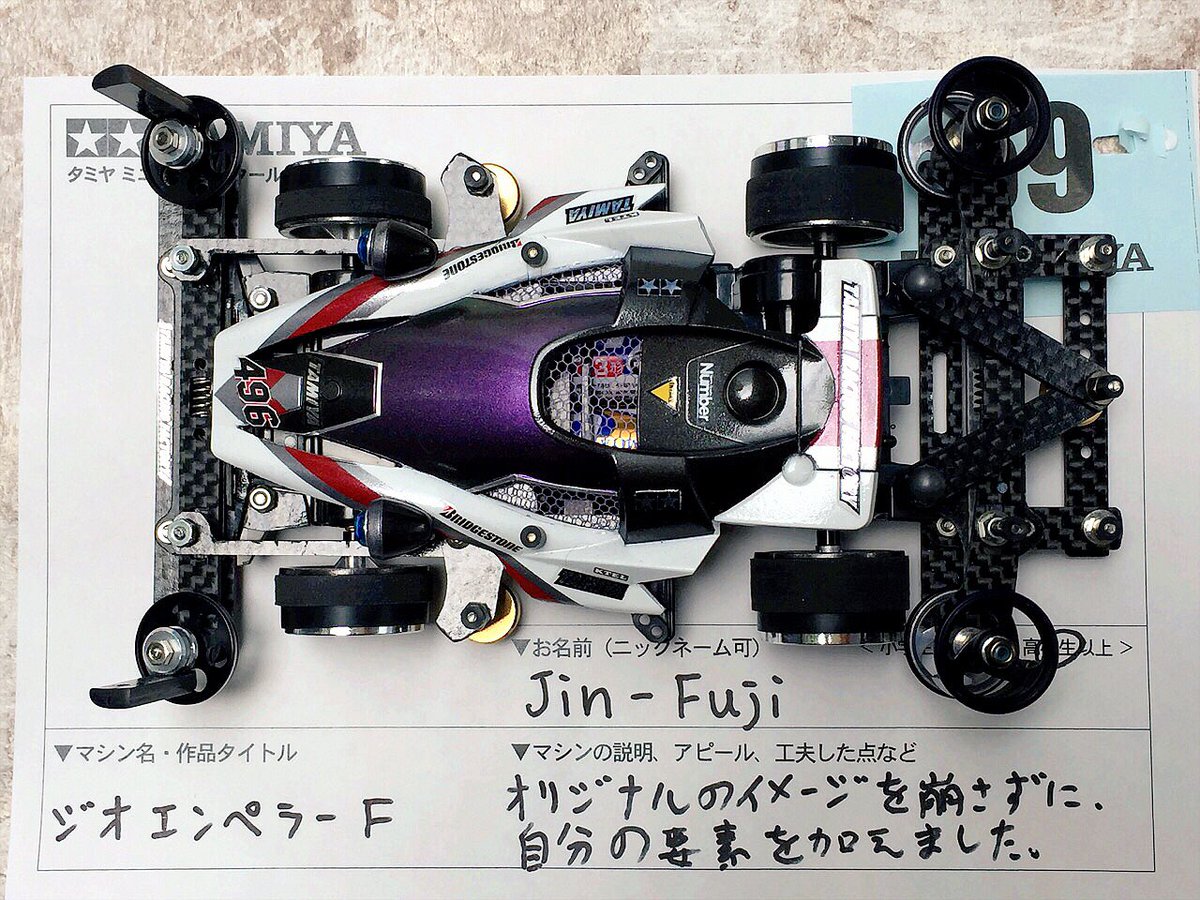 TAMIYA
タミヤ ミニ
99
BRIDGESTONE
TAMIYA
KTEL
496
TAMIYA
Number
BRIDGESTONE
KTEL
▼お名前（ニックネーム可）
以上 >
Jin-Fuji
▼マシン名・作品タイトル
ジオエンペラー F
▼マシンの説明、アピール、工夫した点など
オリジナルのイメージを崩さずに、
自分の要素を加えました。